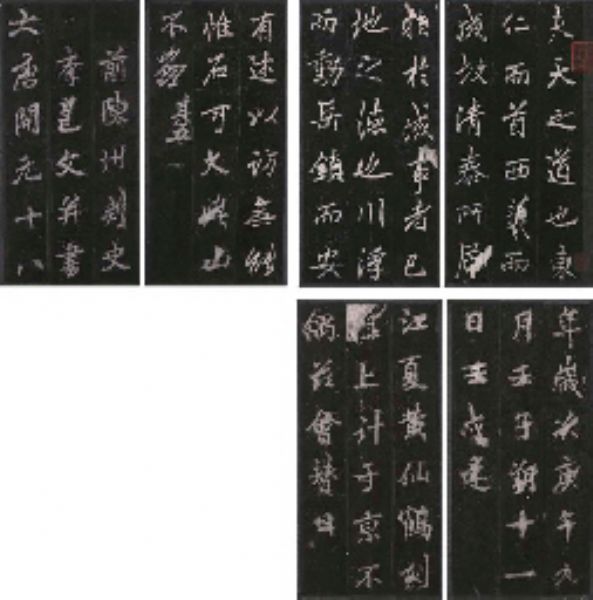 夫天之道也東
仁而首西義而
成故清泰所居
於成事者已
地之德也川浮
而動岳鎮而安
有述以訪無能
惟石可久此山
不騫其五
前陳州刺史
李邕文并書
大唐開元十八
年歲次庚午九
月壬子朔十一
日壬戌建
江夏黃仙鶴刻
上計于京不
偶茲會贊曰